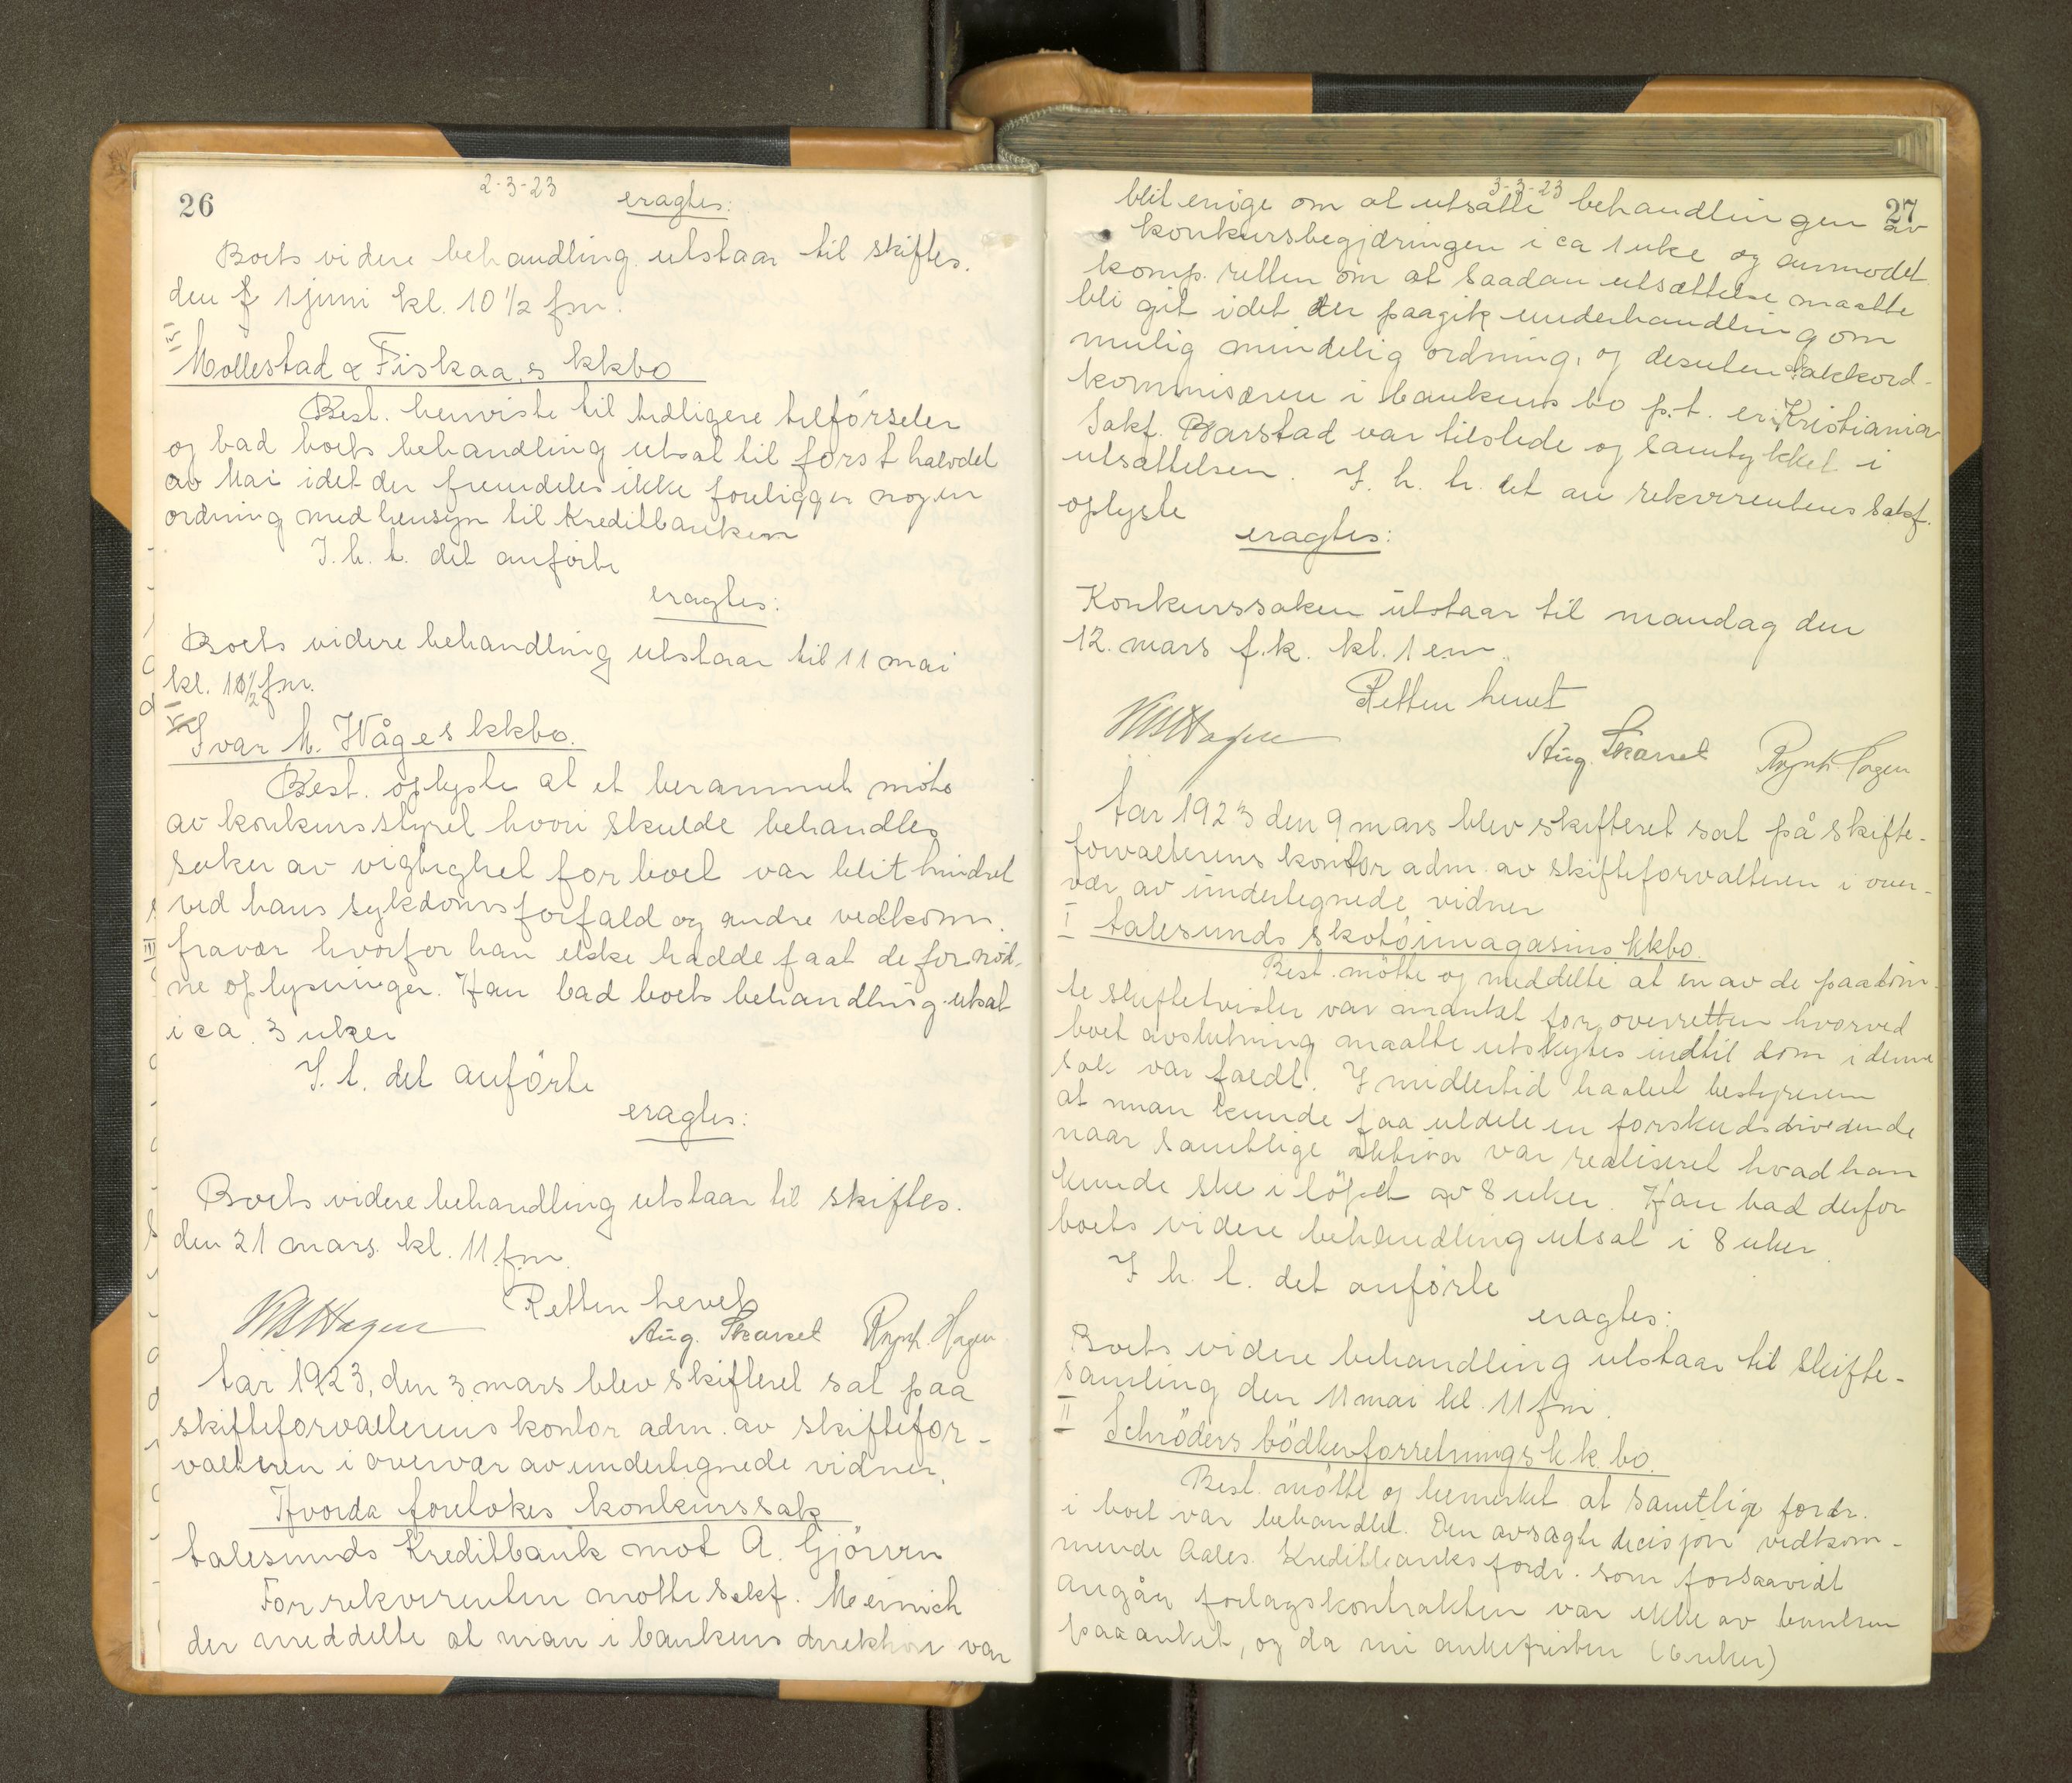 26
2-3-23
eragtes:
Boets videre behandling utstaar til skiftes.
den 1 juni kl. 10 1/2 fm.
IV
Mollestad & Fiskaa,s kkbo
Best. henviste til tidligere tilförseler
og bad boets behandling utsat til först halvdel
av Mai idet der fremdeles ikke foreligger nogen
ordning med hensyn til Kreditbanken
I. h. t. det anförte
eragtes:
Boets videre behandling utstaar til 11 mai
kl. 10 1/2 fm.
V
Ivar M. Wåges kkbo.
Best. oplyste at et berammet möte
av konkursstyret hvori skulde behandles
saker av vigtighet for boet var blit hindret
ved hans sykdomsforfald og andre vedkomm.
fravær hvorfor han ikke hadde faat de fornöd-
ne oplysninger. Han bad boets behandling utsat
i ca. 3 uker
I. t. det anförte
eragtes:
Boets videre behandling utstaar til skiftes.
den 21 mars. kl. 11 fm.
Retten hevet
Hagen
Aug. Skarset
Hagen
Aar 1923, den 3 mars blev skifteret sat paa
skifteforvalterens kontor adm. av skiftefor-
valteren i overvær av undertegnede vidner.
Hvorda foretokes konkurssak
Aalesunds Kreditbank mot A. Gjörven
For rekvirenten mötte sakf. Meinich
der meddelte at man i bankens direktion var
27
3-3-23
blit enige om at utsætte behandlingen av
konkursbegjæringen i ca 1 uke og anmodet
komp. retten om at saadan utsættelse maatte
bli git idet der paagik underhandling om
mulig mindelig ordning, og desuten at akkord-
kommisæren i bankens bo p.t. er i Kristiania
Sakf. Barstad var tilstede og samtykket i
utsættelsen. I. h. h. t. det av rekvirentens sakf.
oplyste
eragtes:
Konkurssaken utstaar til mandag den
12. mars f.k. kl. 1 em.
Retten hevet
Hagen
Aug. Skarset
Hagen
Aar 1923 den 9 mars blev skifteret sat på skifte-
forvalterens kontor adm. av skifteforvalteren i over-
vær av undertegnede vidner
I
Aalesunds skotöimagasins kkbo.
Best. mötte og meddelte at en av de paadöm-
te skiftetvister var inanket for overretten hvorved
boet avslutning maatte utskytes indtil dom i denne
sak var faldt. Imidlertid haabet bestyreren
at man kunde faa utdele en forskudsdividende
naar samtlige aktiva var realiseret hvad han
kunde ske i löpet av 8 uker. Han bad derfor
boets videre behandling utsat i 8 uker.
I h. t. det anförte
eragtes:
Boets videre behandling utstaar til skifte-
samling den 11 mai kl. 11 fm.
II
Schröders bödkerforretnings k.k. bo.
Best. mötte og bemerket at samtlige fordr.
i boet var behandlet. Den avsagte decisjon vedkom-
mende Aales. Kreditbanks fordr. som forsaavidt
angår forlagskontrakten var ikke av banken
paaanket, og da nu ankefristen (6 uker)